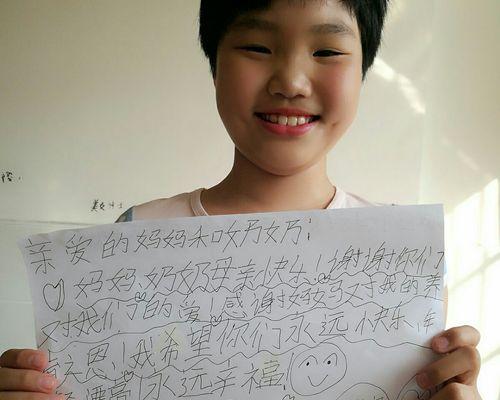 亲爱的妈妈和奶奶:
妈妈、奶奶母亲快乐!谢谢你们
对我们的爱!感谢妈妈对我的养
育之恩!我希望你们永远快乐、年
轻漂亮!永远幸福!